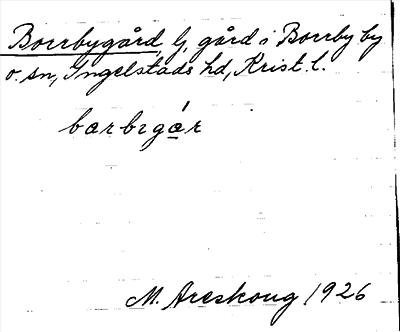 Borrbygård, G, gård i Borrby by
o. sn, Ingelstads hd, Krist. l.
bɑrbıgɑ́r
M. Areskoug 1926